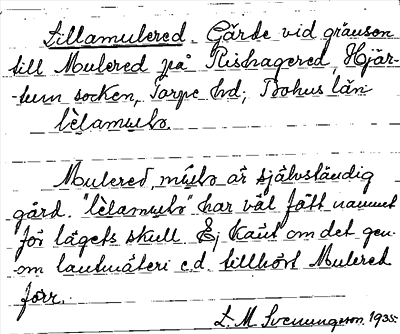 Lillamulered. Gärde vid gränsen
till Mulered på Rishagered, Hjär-
tum socken, Torpe hd; Bohus län
lèlamulɷ.
Mulered, múlɷ är självständig
gård. "lèlamulɷ" har väl fått namnet
för lägets skull. Ej känt om det gen-
om lantmäteri e.d. tillhört Mulered
förr.
L. M. Svenungsson. 1935.